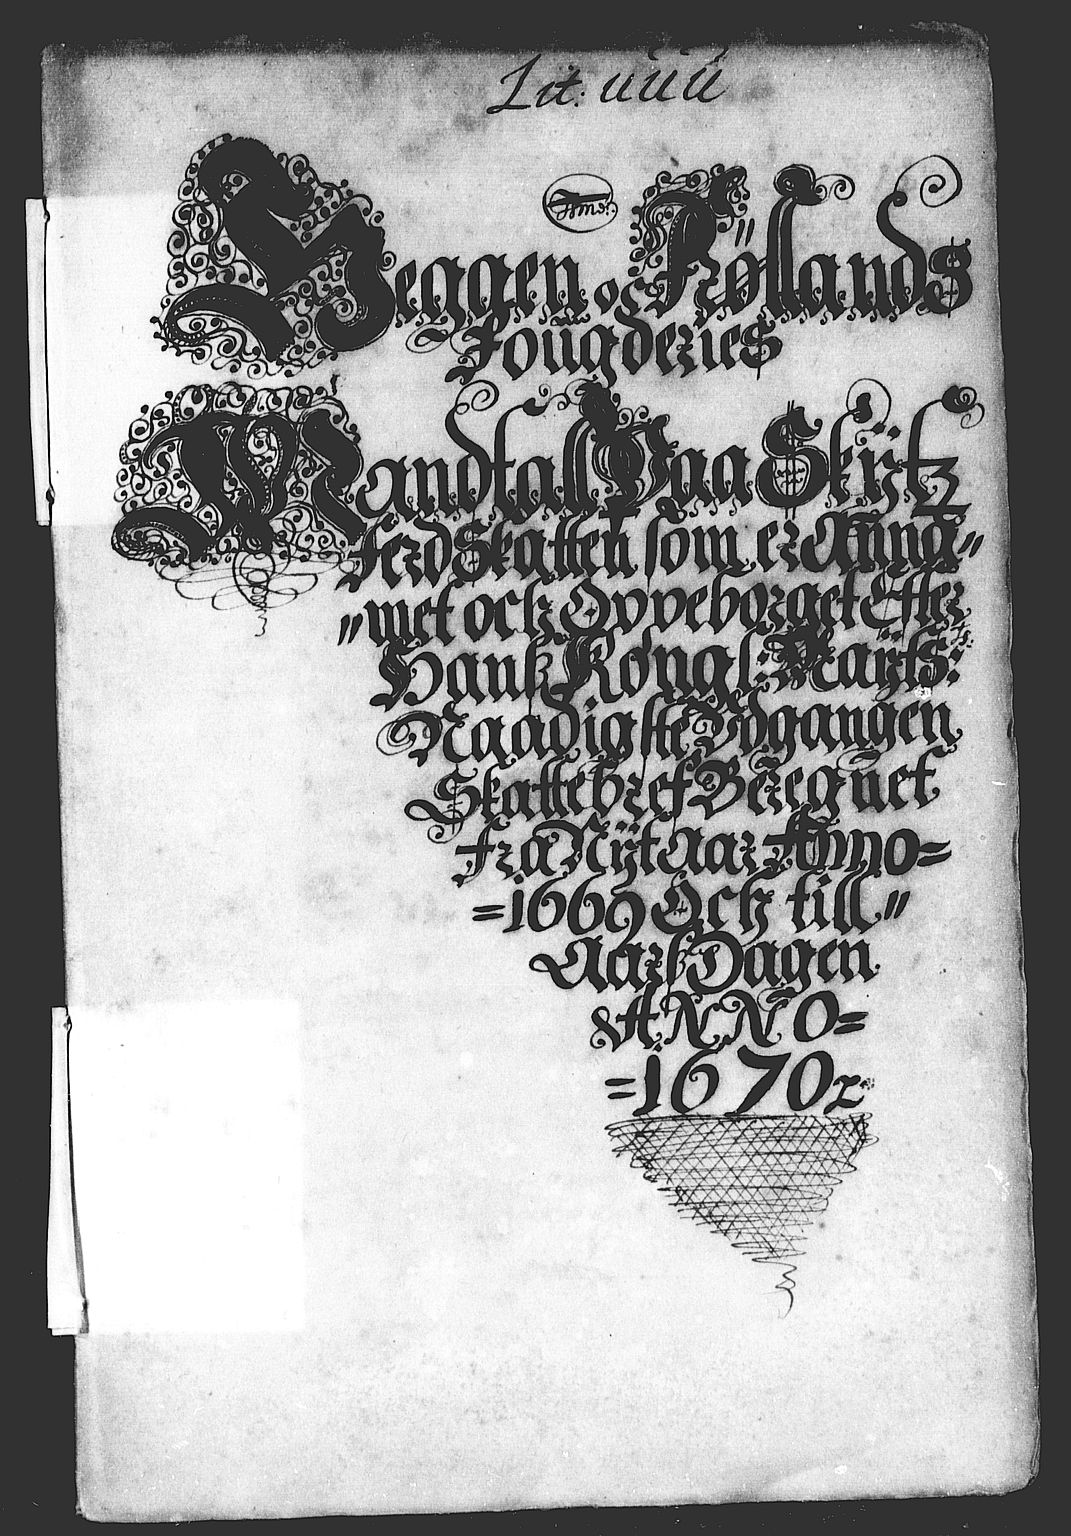 Lit: üüü
Heggen oc Frøllands
Foügderies
Mandtall Paa Skÿtz
ferd Skatten som er Anna„
„met och Opveborget Effter
Hans Kongl: Maÿts:
Naadigste Udgangen
Skattebref Beregnet
fra Nÿt Aar Anno=
=1669 Och till„
Aars Dagen
ANNO=
=1670